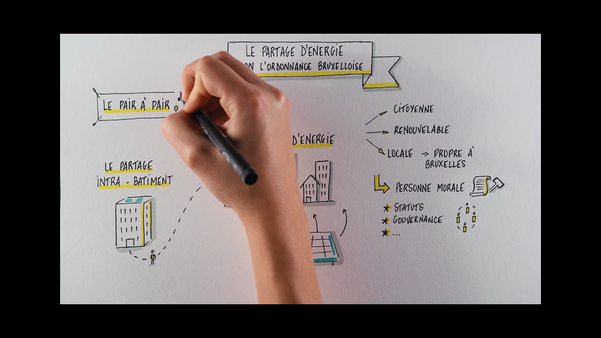 LE PARTAGE D'ENERGIE
L'ORDONNANCE BRUXELLOISE
LE PAIR À PAIR
D'ENERGIE
LE PARTAGE
INTRA - BATIMENT
CITOYENNE
RENOUVELABLE
LOCALE → PROPRE À
BRUXELLES
PERSONNE MORALE
STATUTS
GOUVERNANCE
...